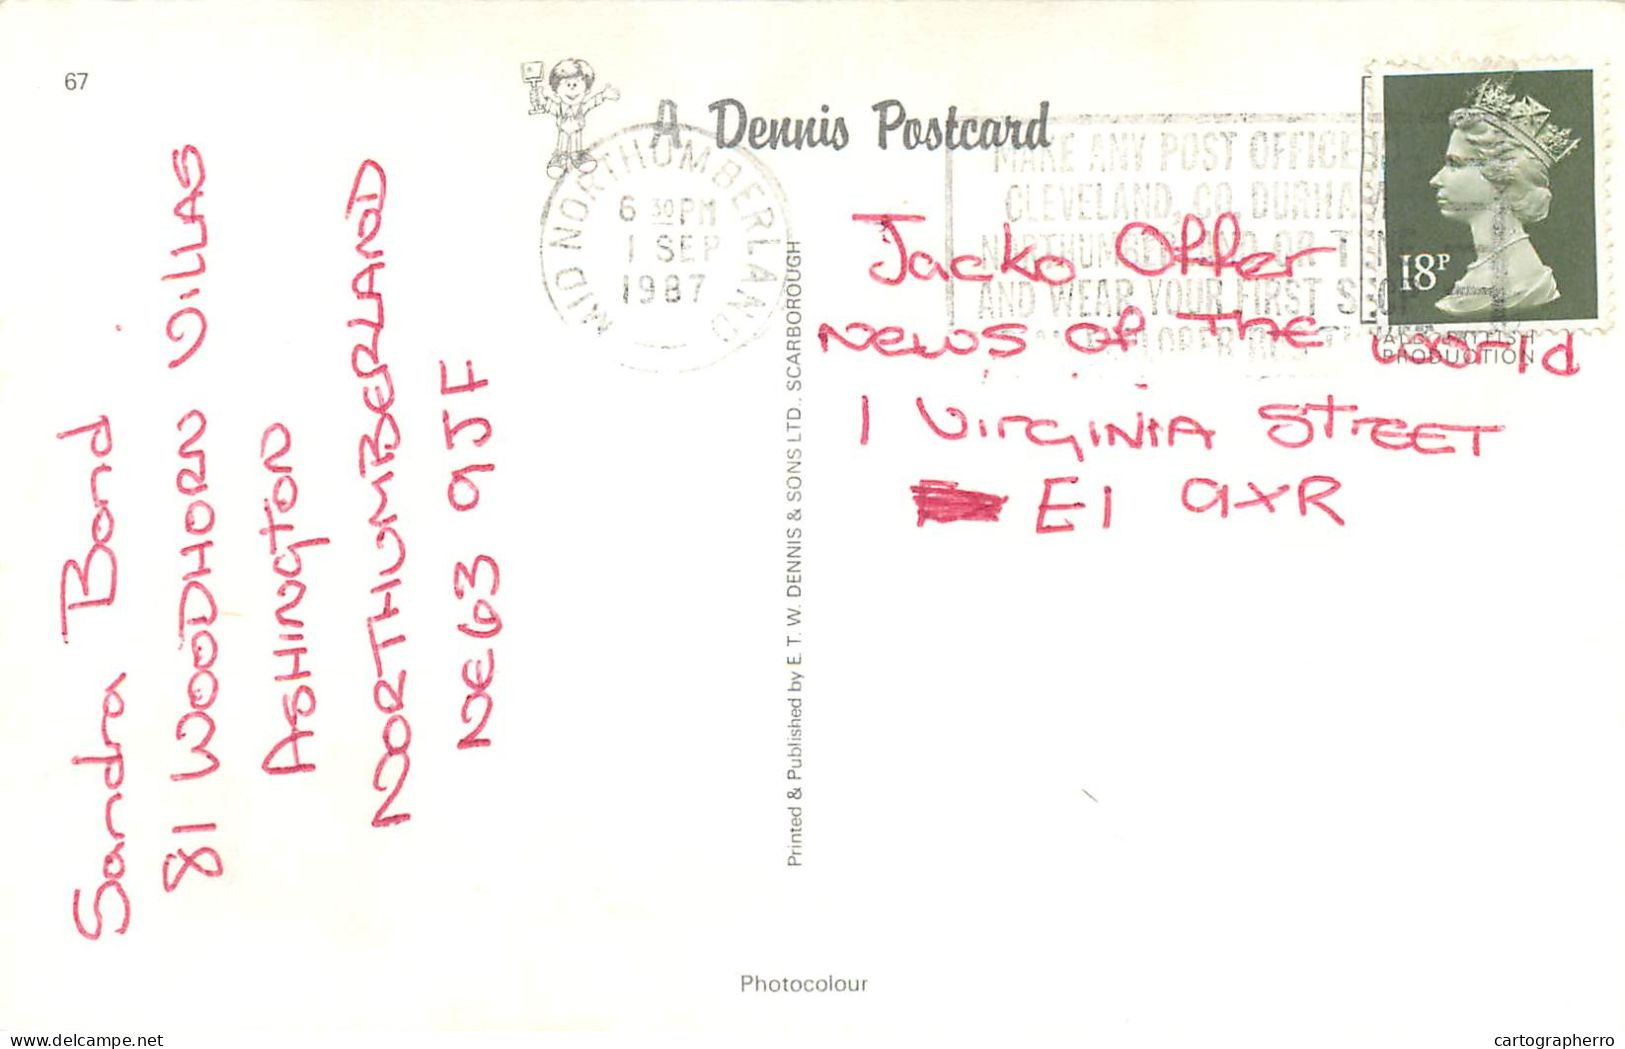 67
A Dennis Postcard
MID NORTHUMBERLAND
6 30 PM
1 SEP
1987
MAKE ANY POST OFFICE
CLEVELAND, CO. DURHAM
OR
AND WEAR YOUR FIRST
18P
BRITISH
PRODUCTION
Jacko Offer
News of The World
1 VirGINIA StrEET
E1 9XR
Sandra Bond
81 WOODHORN VILLAS
ASHINGTON
NORTHUMBERLAND
NE63 9JF
Printed & Published by E. T. W. DENNIS & SONS LTD., SCARBOROUGH
Photocolour
delcampe.net
cartographerro